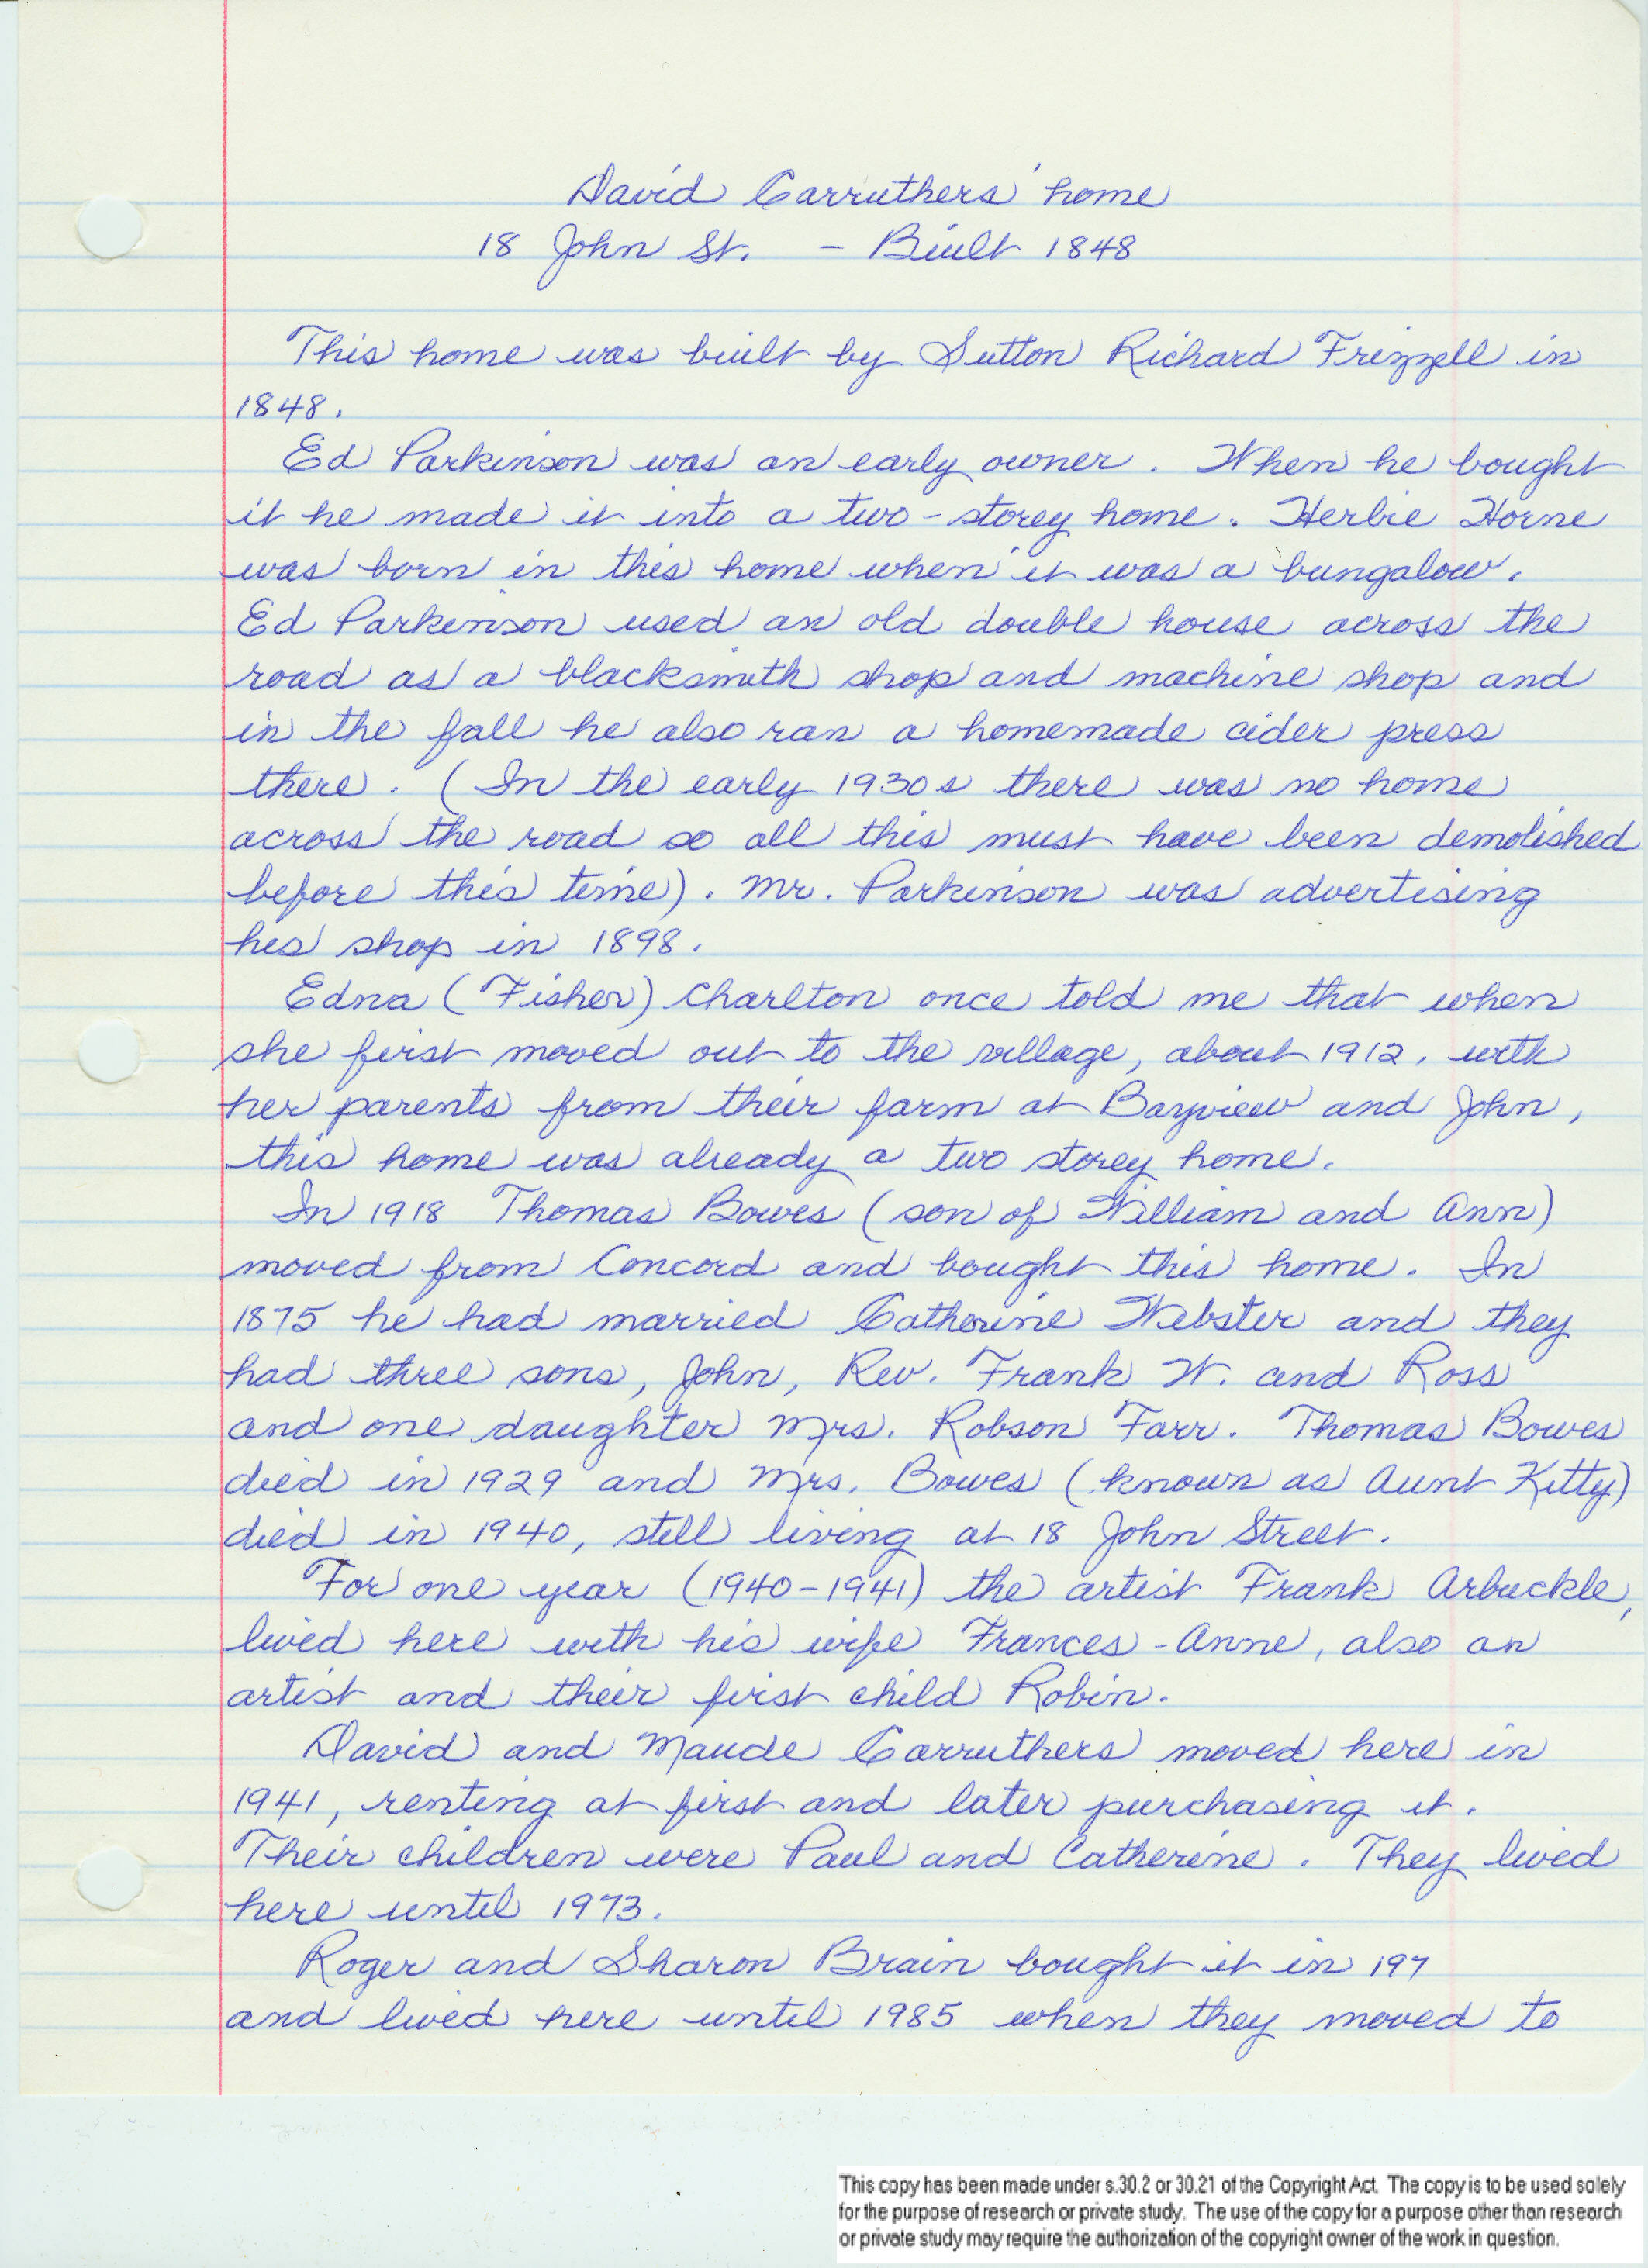 David Carruthers' home
18 John St. - Built 1848
This home was built by Sutton Richard Frizzell in
1848.
Ed Parkinson was an early owner. When he bought
it he made it into a two-storey home. Herbie Horne
was born in this home when it was a bungalow.
Ed Parkinson used an old double house across the
road as a blacksmith shop and machine shop and
in the fall he also ran a homemade cider press
there. (In the early 1930s there was no home
across the road so all this must have been demolished
before this time). Mr. Parkinson was advertising
his shop in 1898.
Edna (Fisher) Charlton once told me that when
she first moved out to the village, about 1912, with
her parents from their farm at Bayview and John,
this home was already a two storey home.
In 1918 Thomas Bowes (son of William and Ann)
moved from Concord and bought this home. In
1875 he had married Catherine Webster and they
had three sons, John, Rev. Frank W. and Ross
and one daughter Mrs. Robson Farr. Thomas Bowes
died in 1929 and Mrs. Bowes (known as Aunt Kitty)
died in 1940, still living at 18 John Street.
For one year (1940-1941) the artist Frank Arbuckle,
lived here with his wife Frances-Anne, also an
artist and their first child Robin.
David and Maude Carruthers moved here in
1941, renting at first and later purchasing it.
Their children were Paul and Catherine. They lived
here until 1973.
Roger and Sharon Brain bought it in 197
and lived here until 1985 when they moved to
This copy has been made under s.30.2 or 30.21 of the Copyright Act. The copy is to be used solely
for the purpose of research or private study. The use of the copy for a purpose other than research
or private study may require the authorization of the copyright owner of the work in question.